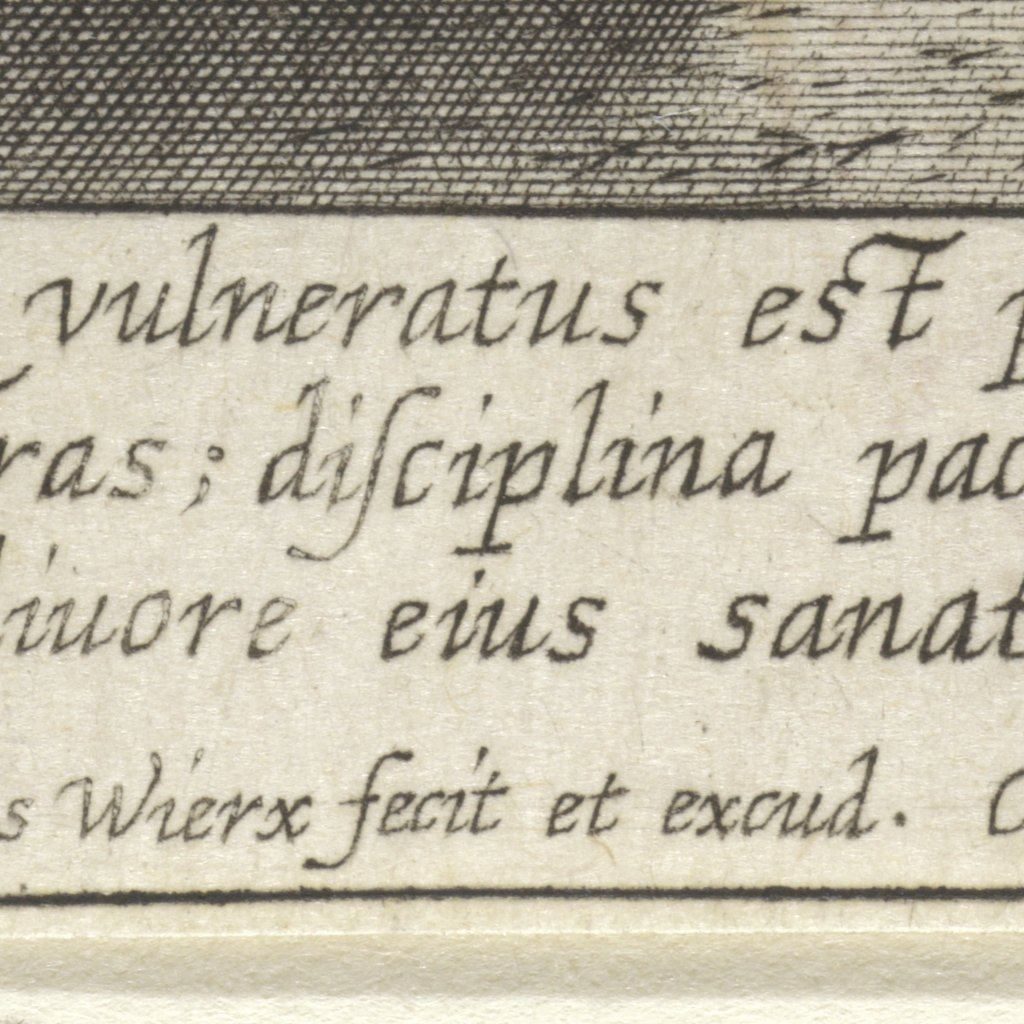 vulneratus est p
ras; diſciplina pac
liuore eius sanat
s Wierx fecit et excud. C